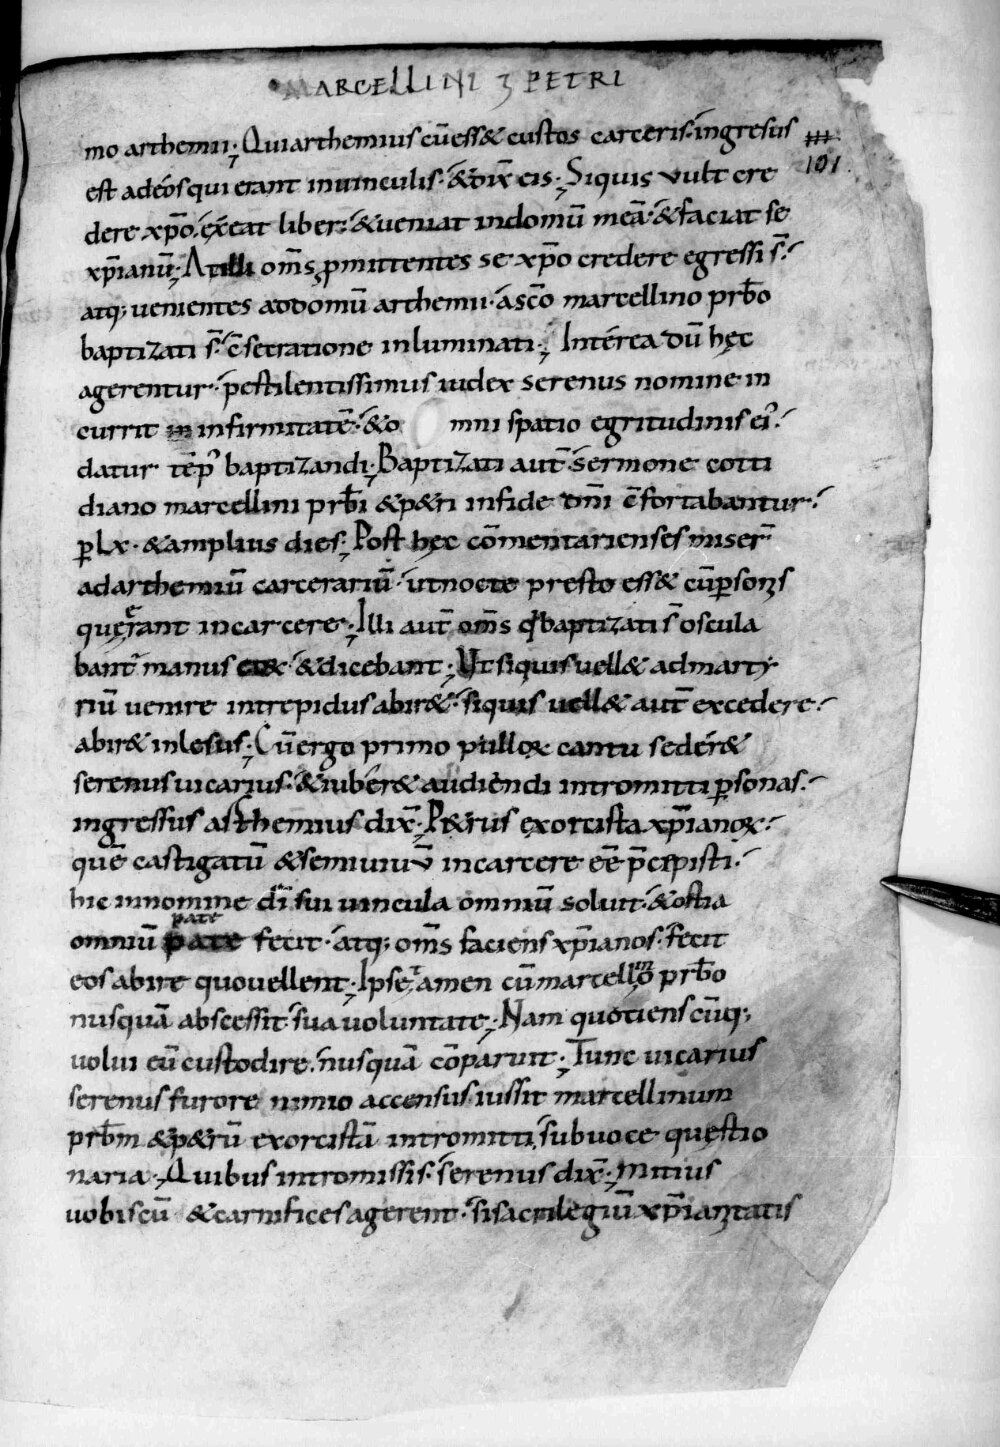 MARCELLINI ⁊ PETRI
mo arthemii·; Qui arthemius cū ess& custos carceris· ingresus
101
est ad eos qui erant in uinculis· & dix̄ eis·; Siquis vult cre
dere xp̄o, exeat liber· & ueniat in domū meā· & faciat se
xp̄ianū·; At illi om̄s pmittentes se xp̄o credere egressi s̄·
atq; uenientes addomū arthemii· a sc̄o marcellino prb̄o
baptizati s̄· c̄secratione inluminati·; Interea dū hęc
agerentur· pestilentissimus iudex serenus nomine in
currit in infirmitatē· & o mni spatio egritudinis ei᾽·
datur tēp᾽ baptizandi·; Baptizati aut̄ sermone cotti
diano marcellini prb̄i & p&ri in fide dn̄i c̄fortabantur·
p lx· & amplius dies·; Post hęc cōmentarienses miser̄
ad arthemiū carcerariū· ut nocte presto ess& cū psonis
quę erant in carcere·; Illi aut̄ om̄s q̄ baptizati s̄ oscula
bant᾽ manus eoꝝ· & dicebant·; Ut siquis uell& ad marty
riū uenire intrepidus abir&· siquis uell& aut̄ excedere·
abir& inlesus·; Cū ergo primo pulloꝝ cantu seder&
serenus uicarius· & iuber& audiendi intromitti psonas·
ingressus arthemius dix̄·; P&rus exorcista xp̄ianoꝝ·
quē castigatū & semiuiuū in carcere eē p̄cepisti·
hic in nomine dī sui uincula omniū soluit· & ostia
pate
omniū pate fecit· atq; om̄s faciens xp̄ianos· fecit
eos abire quo uellent·; Ipse tamen cū marcellino prb̄o
nusquā abscessit sua uoluntate·; Nam quotienscūq;
uolui eū custodire, nusquā cōparuit·; Tunc uicarius
serenus furore nimio accensus iussit marcellinum
prb̄m & p&rū exorcistā intromitti sub uoce quęstio
naria·; Quibus intromissis· serenus dix̄·; Mitius
uobiscū & carnifices agerent· si sacrilegiū xp̄ianitatis